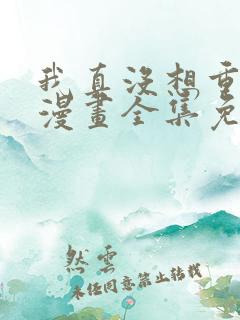 我真没想重
漫畫全集免
然雲
未经同意禁止转载